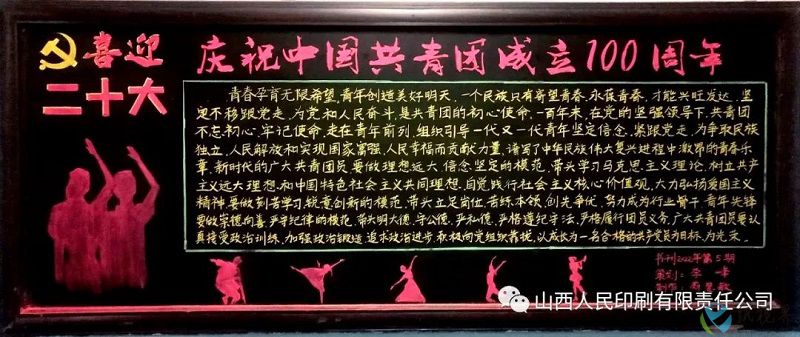 喜迎
二十大
庆祝中国共青团成立100周年
青春孕育无限希望,青年创造美好明天。一个民族只有寄望青春、永葆青春,才能兴旺发达。坚
定不移跟党走,为党和人民奋斗,是共青团的初心使命。一百年来,在党的坚强领导下,共青团
不忘初心、牢记使命,走在青年前列,组织引导一代又一代青年坚定信念、紧跟党走,为争取民族
独立、人民解放和实现国家富强、人民幸福而贡献力量,谱写了中华民族伟大复兴进程中激昂的青春乐
章。新时代的广大共青团员,要做理想远大、信念坚定的模范,带头学习马克思主义理论,树立共产
主义远大理想和中国特色社会主义共同理想,自觉践行社会主义核心价值观,大力弘扬爱国主义
精神;要做刻苦学习、锐意创新的模范,带头立足岗位、苦练本领、创先争优,努力成为行业骨干、青年先锋;
要做崇德向善、严守纪律的模范,带头明大德、守公德、严私德,严格遵纪守法,严格履行团员义务。广大共青团员要认
真接受政治训练、加强政治锻造、追求政治进步,积极向党组织靠拢,以成长为一名合格的共产党员为目标、为光荣。
书刊2022年第5期
策划:李一峰
制作:
山西人民印刷有限责任公司